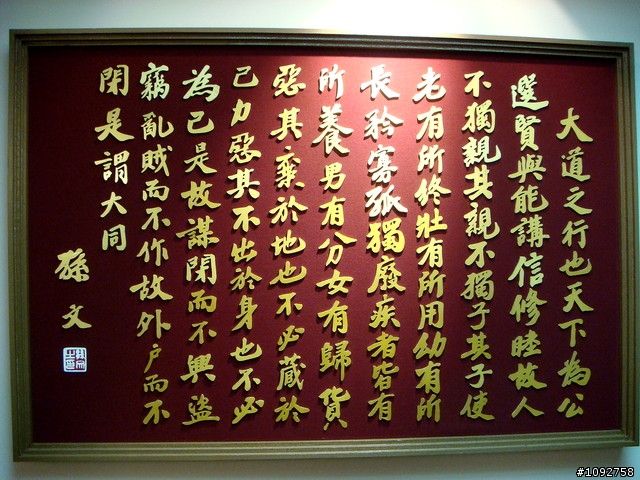 大道之行也天下為公
選賢與能講信修睦故人
不獨親其親不獨子其子使
老有所終壯有所用幼有所
長矜寡孤獨廢疾者皆有
所養男有分女有歸貨
惡其棄於地也不必藏於
己力惡其不出於身也不必
為己是故謀閉而不興盜
竊亂賊而不作故外戶而不
閉是謂大同
孫文
#1092758